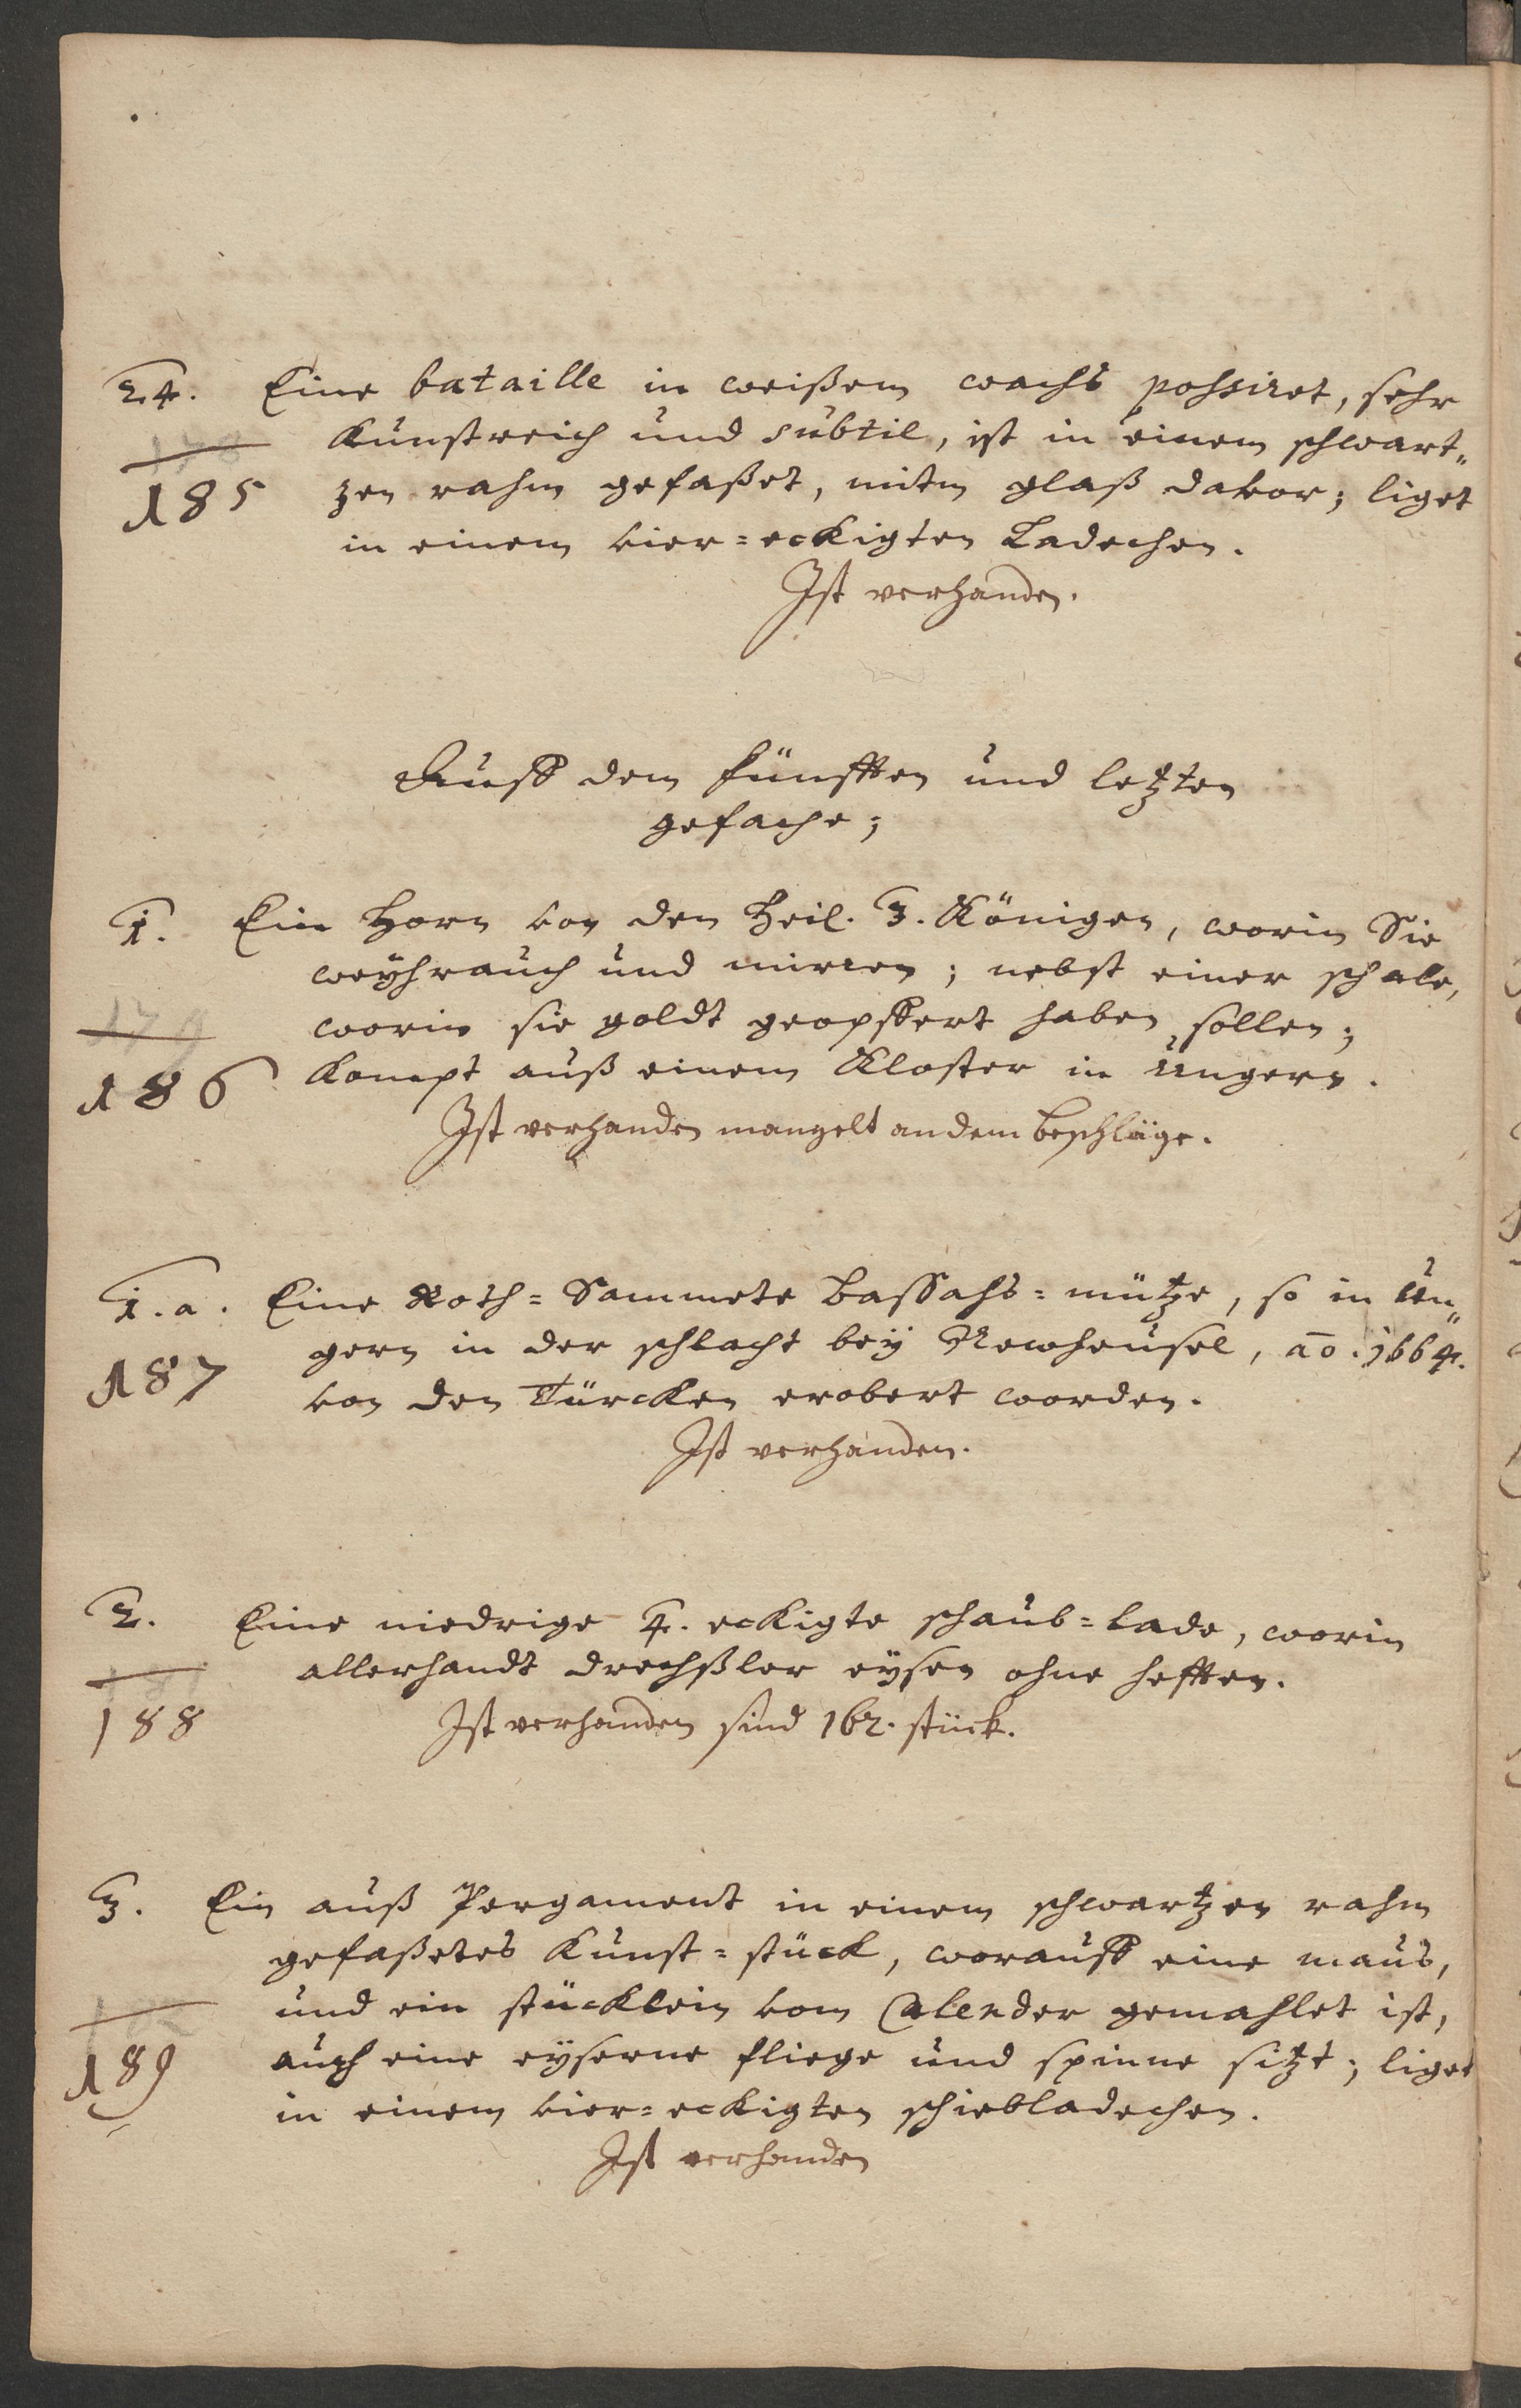 24. Eine bataille in weißem wachs poßsiret, sehr
178
185
Kunstreich und subtil, ist in einem schwart„
zen rahm gefaßet, mitm glaß davor; liget
in einem vier=eckigten Ladechen.
Ist verhanden.
Auff dem fünfften und letzten
gefache;
1. Ein Horn von den Heil. 3. Königen, worin Sie
weyhrauch und mirren; nebst einer schale,
179
186
worin sie goldt geopffert haben sollen;
Kompt auß einem Kloster in Ungern.
Ist verhanden mangelt an dem beschläge.
1.a. Eine Roth=Sammete Bassahs=mütze, so in Un„
187
gern in der schlacht bey Newheusel, ao. 1664.
von den Türcken erobert worden.
Ist verhanden.
2. Eine niedrige 4. eckigte schaub=lade, worin
188
allerhandt drechßler eysen ohne hefften.
Ist verhanden sind 162. stück.
3. Ein auß Pergament in einem schwartzen rahm
gefaßetes Kunst=stück, worauff eine maus,
189
und ein stücklein vom Calender gemahlet ist,
auch eine eyserne fliege und spinne sitzt; liget
in einem vier=eckigten schiebladechen.
Ist verhanden